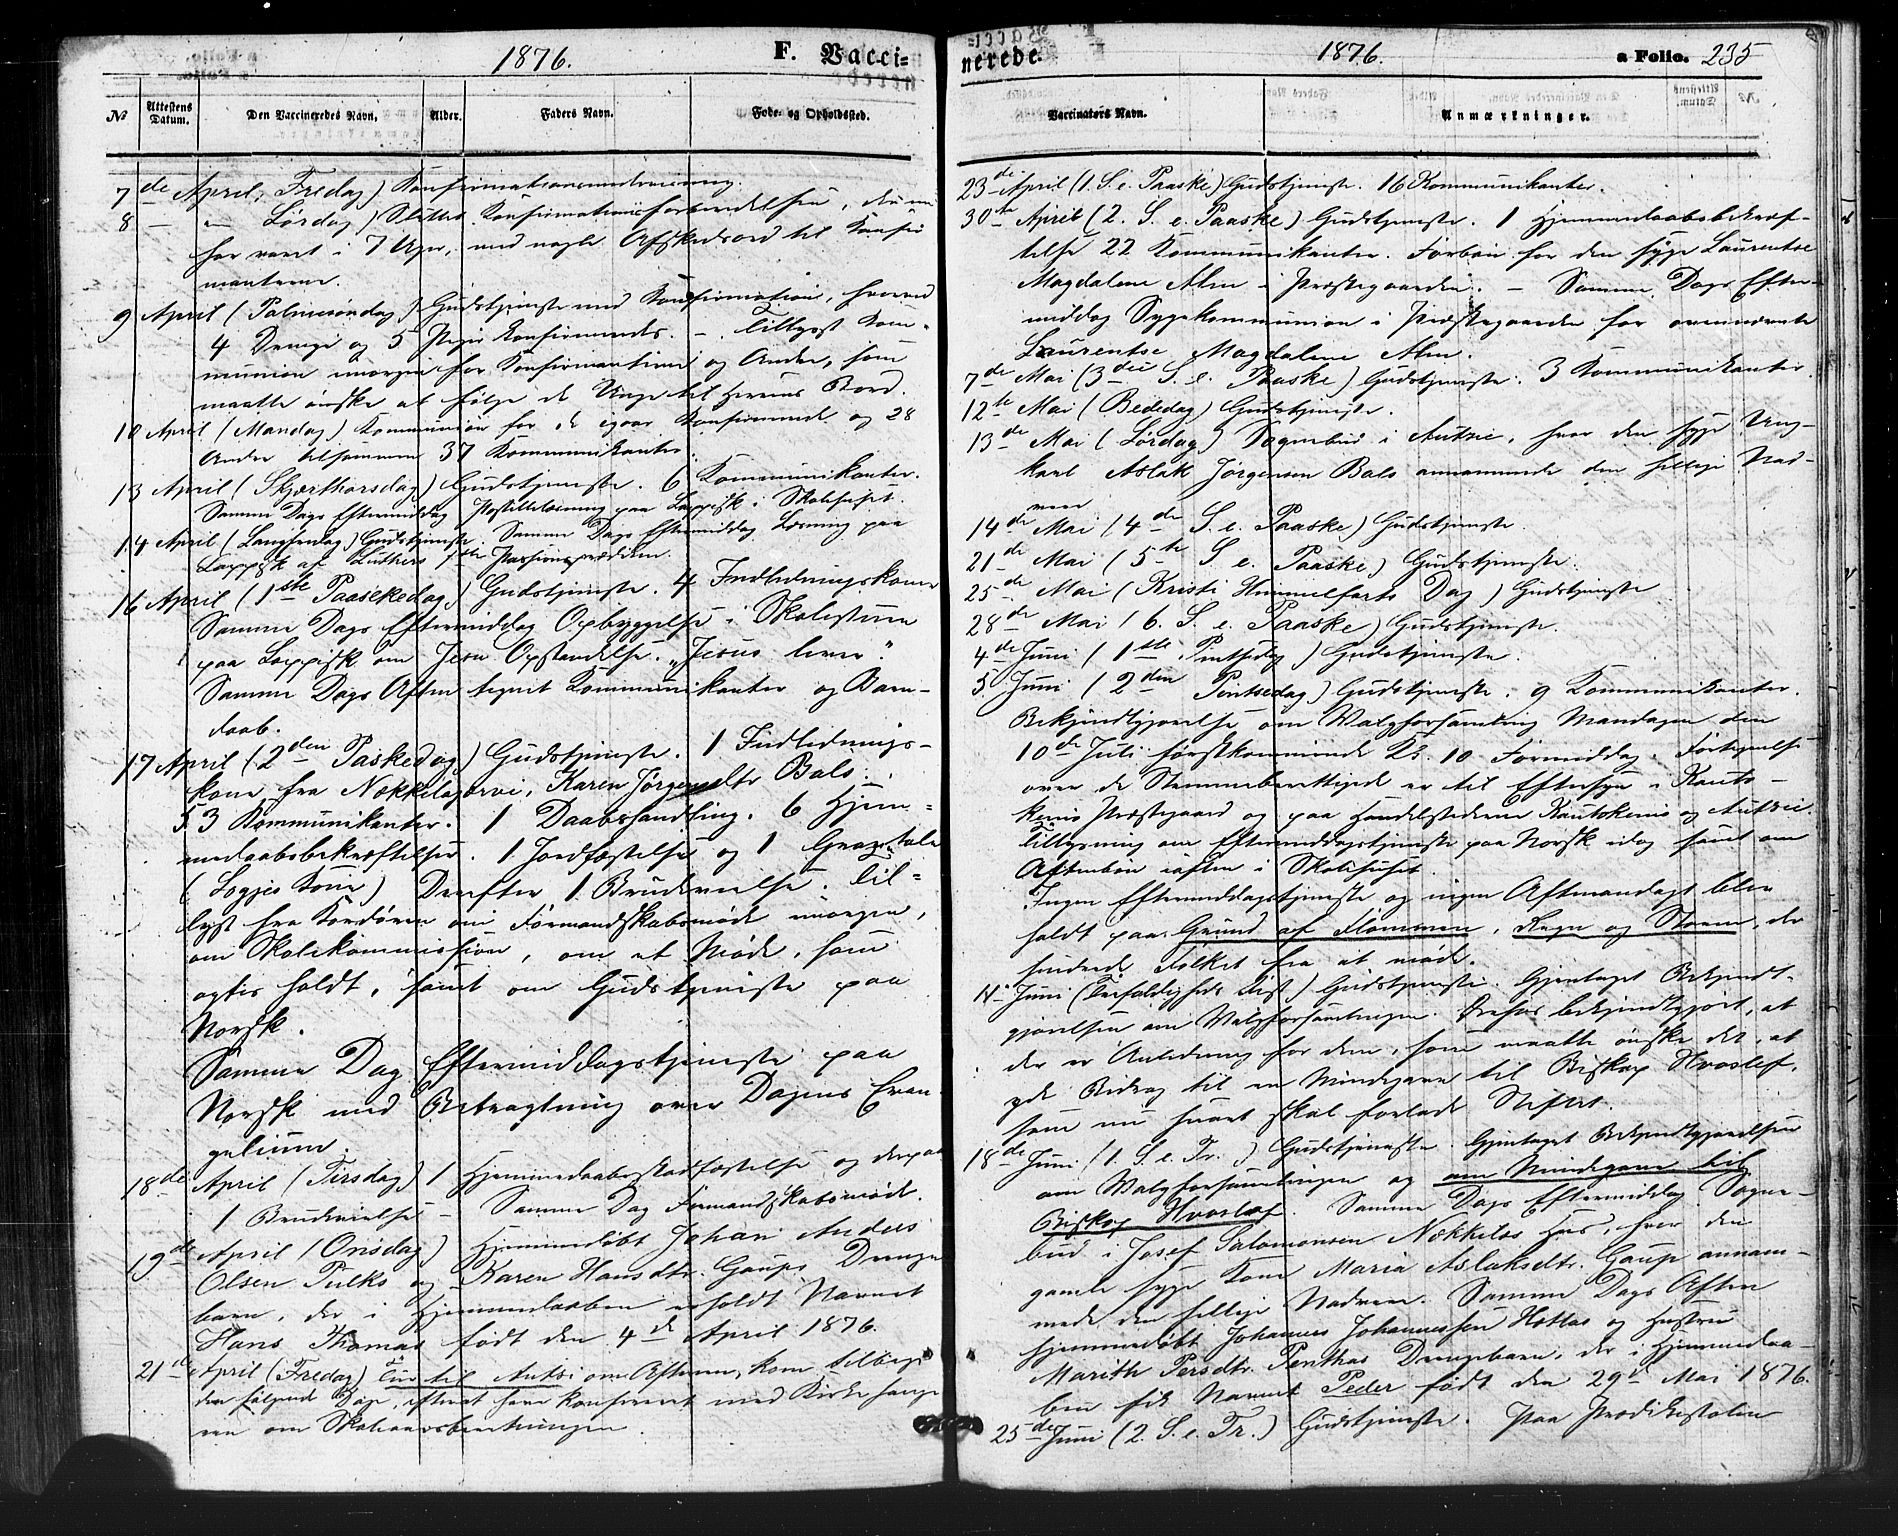 1876.
F. Vacci=
№
Attestens Datum.
Den Vaccineredes Navn,
Alder.
Faders Navn.
Føde- og Opholdssted.
7de April, Fredag) Konfirmationsundervisning.
8 — " Lørdag) Sluttet Konfirmationsforberedelsen, der nu
har varet i 7 Uger, med nogle Afskedsord til Konfir
manterne.
9 April (Palmesøndag) Gudstjeneste med Konfirmation, hvorved
4 Drenge og 5 Piger konfirmeredes. – Tillyst Kom=
munion imorgen for Konfirmanterne og Andre, som
maatte ønske at følge de Unge til Herrens Bord.
10 April (Mandag) Kommunion for de igaar Konfirmerede og 28
Andre tilsammen 37 Kommunikanter.
13 April (Skjærthorsdag) Gudstjeneste. 6 Kommunikanter.
Samme Dags Eftermiddag Postillelæsning paa Lappisk i Skolehuset.
14 April (Langfredag) Gudstjeneste. Samme Dags Eftermiddag Læsning paa
Lappisk af Luthers Passionsprædiken.
16 April (1ste Paaskedag) Gudstjeneste. 4 Indledningskoner
Samme Dags Eftermiddag Opbyggelse i Skolestuen
paa Lappisk om Jesu Opstandelse. „Jesus lever".
Samme Dags Aften tegnet Kommunikanter og Barn-
daab.
17 April (2den Paskedag) Gudstjeneste. 1 Indlednings-
kone fra Nækkelæjorvi, Karen Jørgensdtr Bals.
53 Kommunikanter. 1 Daabshandling. 6 Hjem=
medaabsbekræftelser. 1 Jordfæstelse og 1 Gravtale
( Kone) Derefter 1 Brudevielse. Til=
lyst fra Kordøren om Formandskabsmøde imorgen,
om Skolekommission, om et Møde, som
agtes holdt, samt om Gudstjeneste paa
Norsk.
Samme Dag Eftermiddagstjeneste paa
Norsk med Betragtning over Dagens Evan-
gelium.
18de April (Tirsdag) 1 Hjemmedaabsstadfæstelse og derpaa
1 Brudevielse – Samme Dag Formandskabsmøde.
19de April (Onsdag) Hjemmedøbt Johan Anders
Olsen Pulks og Karen Hansdtr. Gaups Drenge
barn, der i Hjemmedaaben erholdt Navnet
Hans Thomas født den 4de April 1876.
21de April (Fredag) Tur til Autsi om Aftenen, kom tilbage
den følgende Dag, efterat have konfereret med Kirkesange
ren om Skoleaarsberetningen.
nerede.
1876.
a Folio. 235
Vaccinatørs Navn.
Anmærkninger.
23de April (1. S. e. Paaske) Gudstjeneste. 16 Kommunikanter.
30te April (2. S. e. Paaske) Gudstjeneste. 1 Hjemmedaabsbekræf-
telse 22 Kommunikanter. Forbøn for den syge Laurentse
Magdalene Alm i Præstegaarden. – Samme Dags Efter-
middag Sygekommunion i Præstegaarden for ovennævnte
Laurentse Magdalene Alm.
7de Mai (3die S. e. Paaske) Gudstjeneste. 3 Kommunikanter.
12te Mai (Bededag) Gudstjeneste.
13de Mai (Lørdag) Sognebud i Autsie, hvor den syge Ung-
karl Aslak Jørgensen Bals annammede den hellige Nad-
vere
14de Mai (4de S. e. Paaske) Gudstjeneste.
21de Mai (5te S. e. Paaske) Gudstjeneste.
25de Mai (Kristi Himmelfarts Dag) Gudstjeneste
28de Mai (6. S. e. Paaske) Gudstjeneste.
4de Juni (1ste Pintsedag) Gudstjeneste.
5. Juni (2den Pintsedag) Gudstjeneste. 9 Kommunikanter.
Bekjendtgjørelse om Valgforsamling Mandagen den
10de Juli førstkommende Kl. 10 Formiddag. Fortegnelse
over de Stemmeberettigede er til Eftersyn i Kauto-
keino Præstegaard og paa Handelstederne Kautokeino og Autsie.
Tillysning om Eftermiddagstjeneste paa Norsk idag samt om
Aftenbøn iaften i Skolehuset.
Ingen Eftermiddagstjeneste og ingen Aftenandagt blev
holdt paa Grund af Flommen, Regn og Storm, der
hindrede Folket fra at møde.
11. Juni (Trefoldigheds Fest) Gudstjeneste. Gjentaget Bekjendt-
gjørelsen om Valgforsamlingen. Derhos bekjendtgjort, at
der er Anledning for dem, som maatte ønske det, at
yde Bidrag til en Mindegave til Biskop Hvoslef,
som nu snart skal forlade Stiftet.
18de Juni (1. S. e. Tr.) Gudstjeneste. Gjentaget Bekjendtgjørelsen
om Valgforsamlingen og om Mindegave til
Biskop Hvoslef. Samme Dags Eftermiddag Sogne-
bud i Josef Salomonsen Nækkeläs Hus, hvor den
gamle syge Kone Maria Aslaksdtr. Gaup annam-
mede den hellige Nadvere. Samme Dags Aften
hjemmedøbt Johannes Johannessen Hottas og Hustru
Marith Persdtr. Penthas Drengebarn, der i Hjemmedaa-
ben fik Navnet Peder født den 29de Mai 1876.
25de Juni (2. S. e. Tr.) Gudstjeneste. Paa Prædikestolen